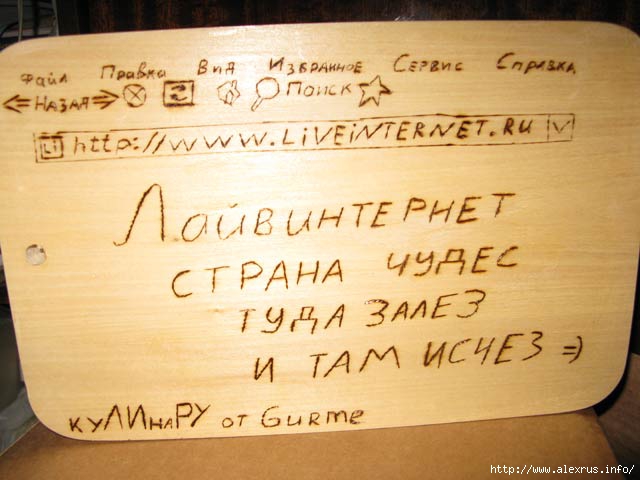 Файл Правка Вид Избранное Сервис Справка
Назад Поиск
Li http://www.LiveiNTERNET.RU
Лайвинтернет
СТРАНА ЧУДЕС
ТУДА ЗАЛЕЗ
И ТАМ ИСЧЕЗ =)
кУЛИнаРУ от Gurme
http://www.alexrus.info/